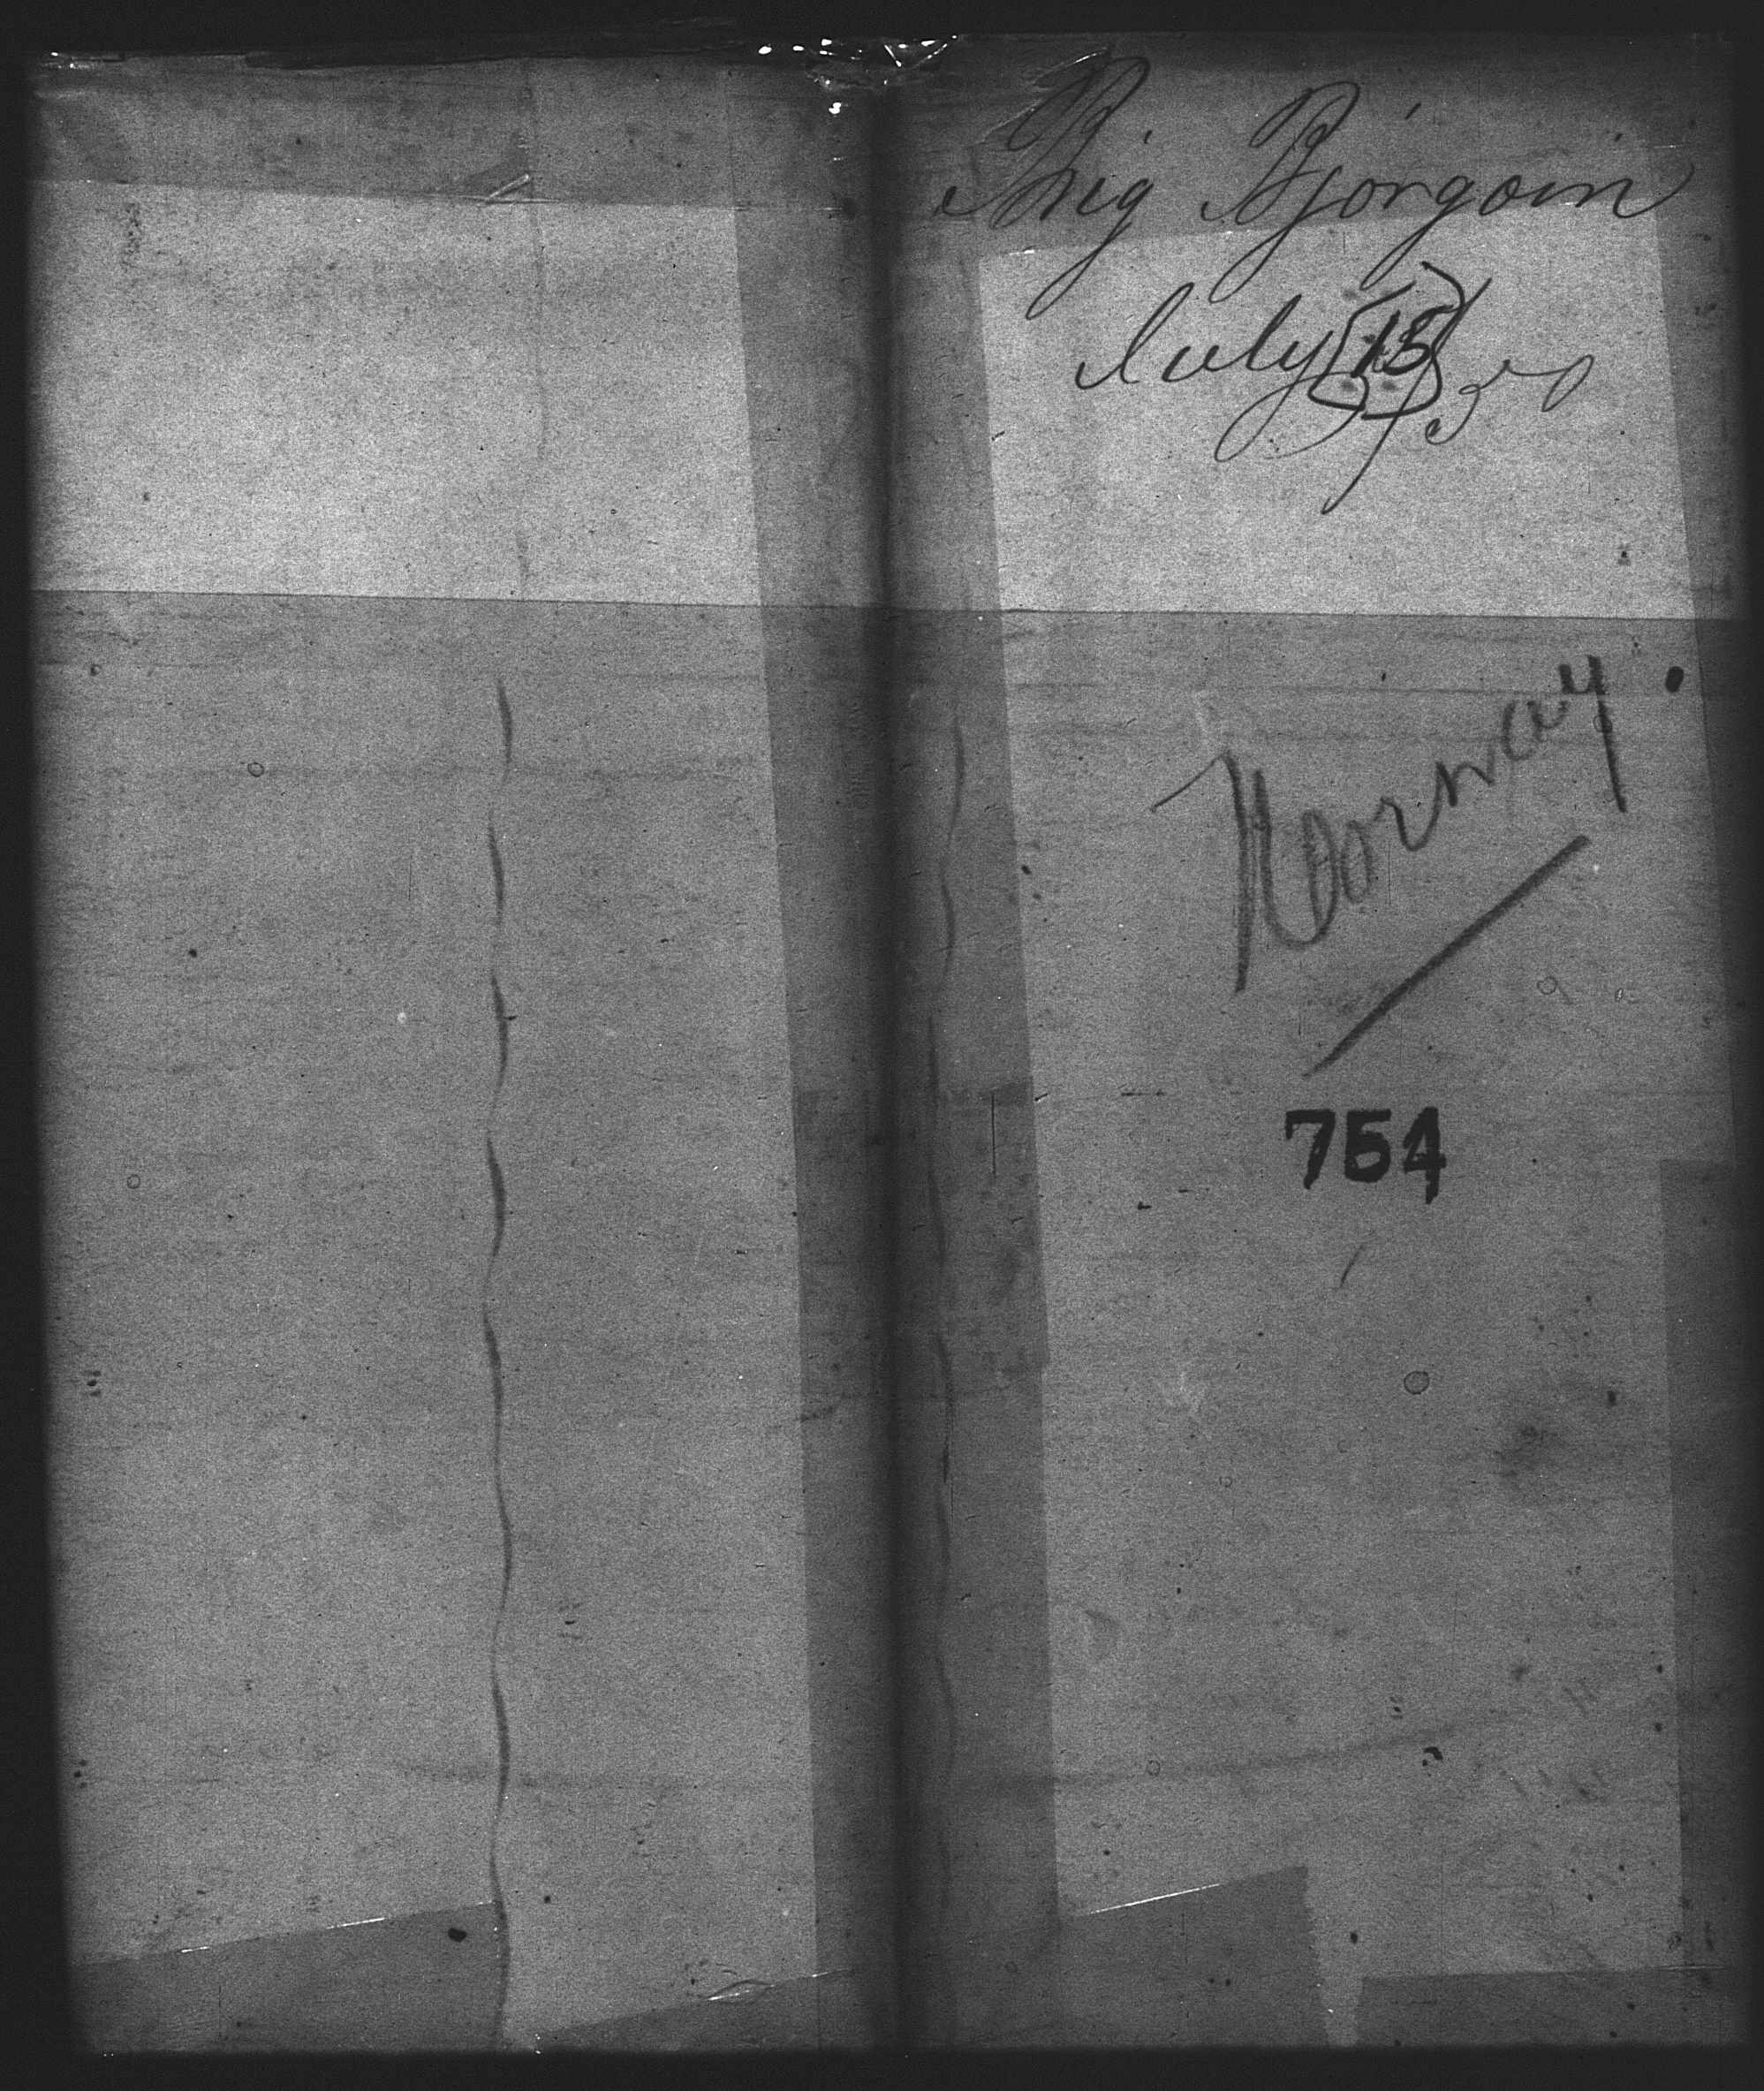 Brig Bjorgvin
July 15/50
Noorway
754